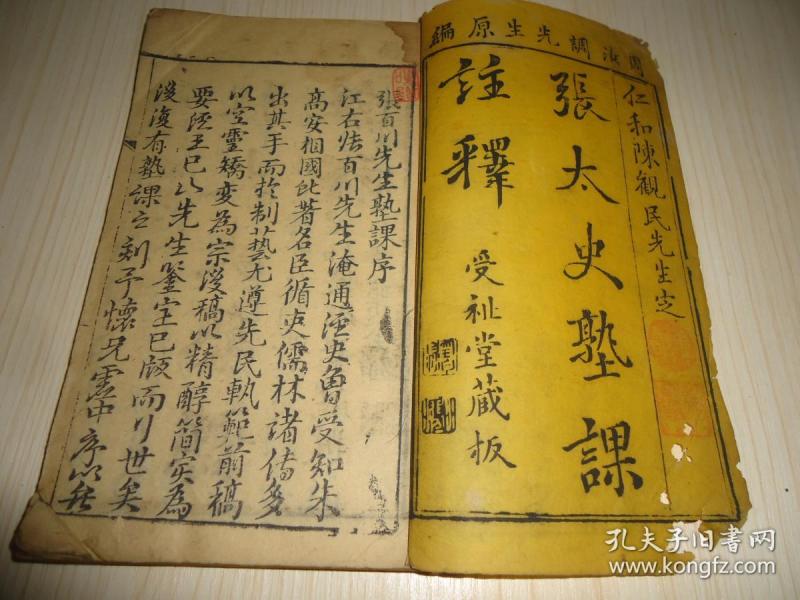 調先生原編
仁和陳觀民先生定
張太史塾課
註釋
受祉堂藏板
張百川先生塾課序
江右張百川先生淹通經史魯受知朱
高安相國此著名臣循吏儒林諸傳多
出其手而扵制藝尤遵先民軌範前稿
以空靈矯變為宗後稿以精醇簡实為
要陸王已以先生鉴定已版而行世矣
後復有塾課之刻予懷兄雲中序以
孔夫子旧书网
www.kongfz.com